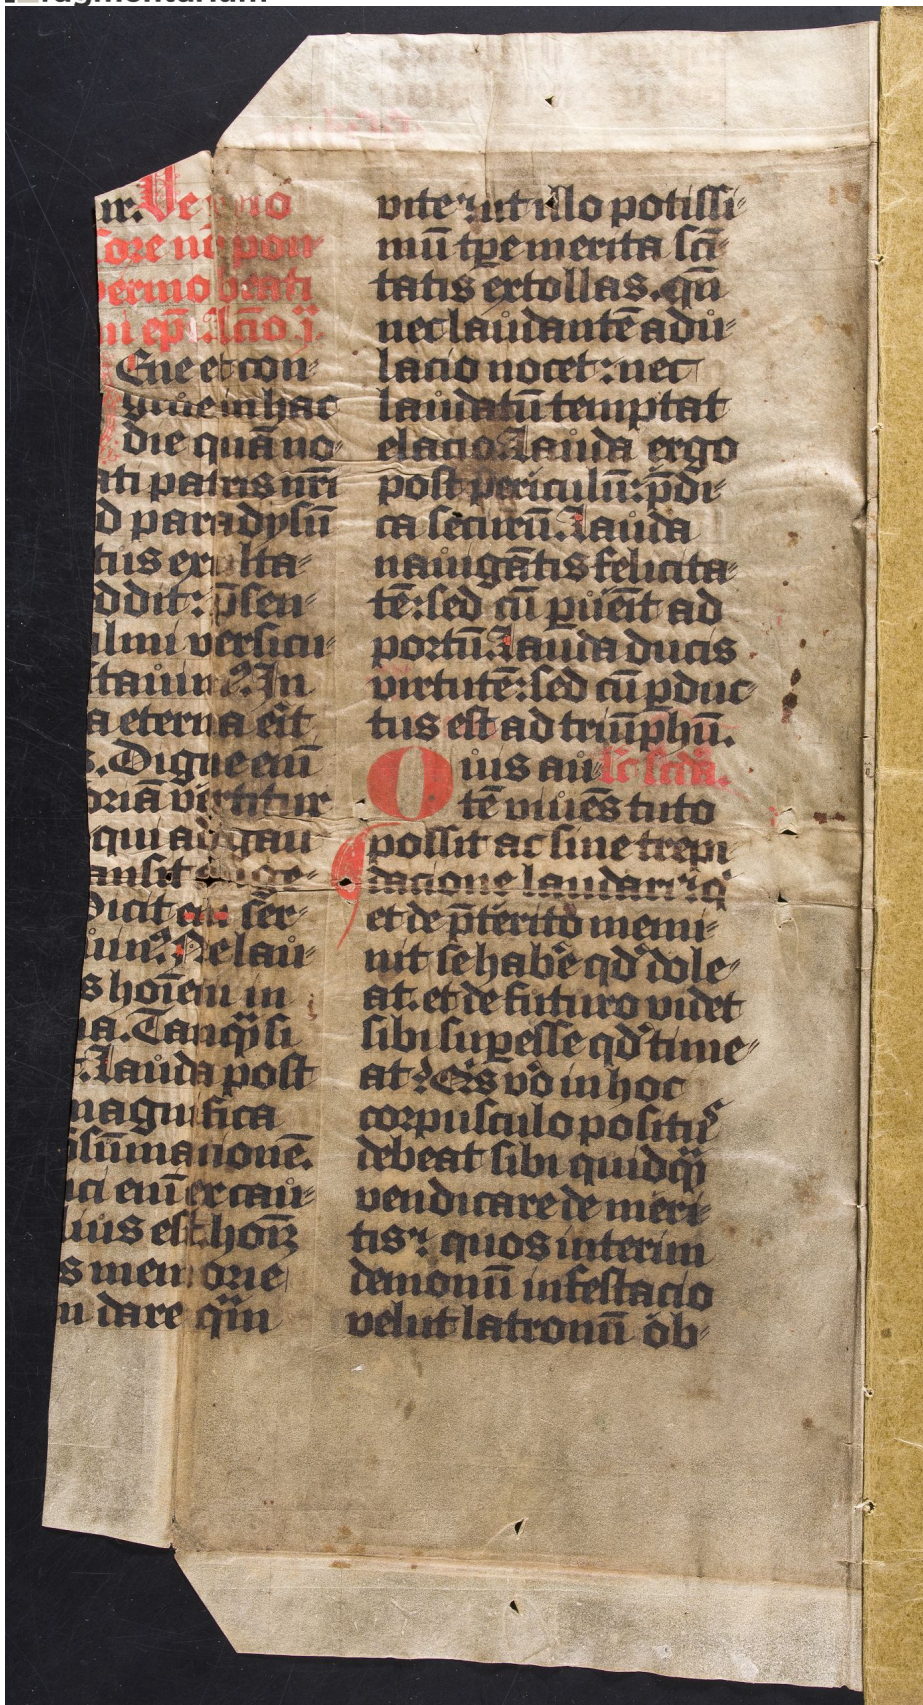 ragmentarium
ir. De
ermo beati
ni ep̄i. lc̄io j.
Ene et con⸗
grue in hac
die quā no⸗
ati patris nr̄i
d paradysū
tus exulta⸗
ddit: p̄sen⸗
almi versicu⸗
In
a eterna erit
s. Digne enī
oriā vertitur
qui ad gau
ansit
Dicit ser⸗
Ne lau⸗
s hoīem in
a. Tanq̄ si
Lauda post
magnifica
sūmationē.
ci enī ex cau⸗
lius est hom̄
s memorie
n dare qn̄
vite ut illo potissi⸗
mū tp̄e merita sc̄i⸗
tatis extollas. qn̄
nec laudantē adu⸗
lacio nocet: nec
laudatū temptat
elacio. Lauda ergo
post periculū: p̄di⸗
ca securū. Lauda
nauigātis felicita⸗
tē: sed cū puēit ad
portū. Lauda ducis
virtutē: sed cū pduc⸗
tus est ad triūphū.
Quis au
tē viuēs tuto
possit ac sine trepi
dacione laudari: q
et de p̄terito memi⸗
nit se habē qd̓ dole⸗
at. et de futuro videt
sibi supesse qd̓ time⸗
at? Qis vo in hoc
corpusculo positus
debeat sibi quidq̄
vendicare de meri⸗
tis: quos interim
demonū infestacio
velut latronū ob⸗